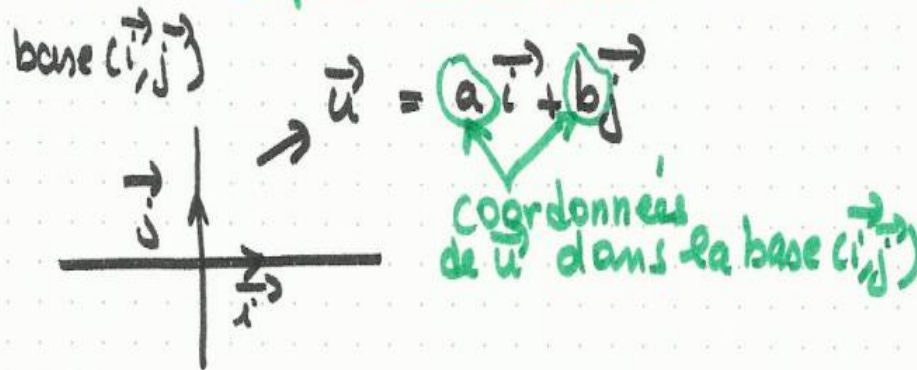 base (i⃗, j⃗)
u⃗ = a i⃗ + b j⃗
j⃗
i⃗
coordonnées
de u⃗ dans la base (i⃗, j⃗)